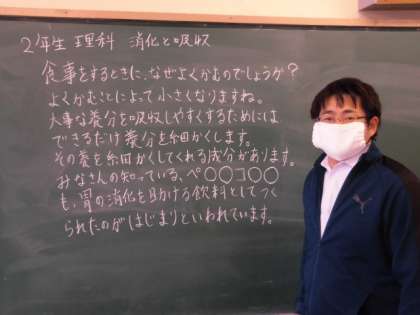 2年生 理科 消化と吸収
食事をするときに、なぜよくかむのでしょうか?
よくかむことによって小さくなりますね。
大事な養分を吸収しやすくするためには
できるだけ養分を細かくします。
その養を細かくしてくれる成分があります。
みなさんの知っている、ペ〇〇コ〇〇
も、胃の消化を助ける飲料としてつく
られたのがはじまりといわれています。